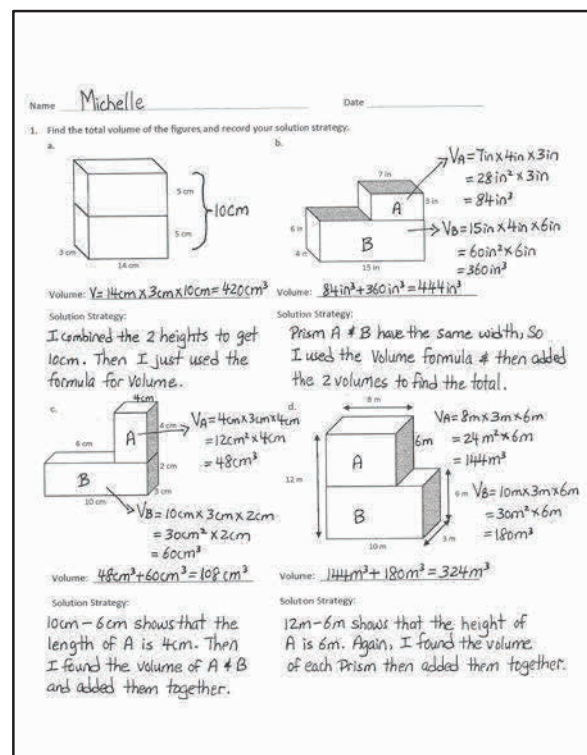 Name Michelle Date
1. Find the total volume of the figures, and record your solution strategy.
a.
5 cm
5 cm
10cm
3 cm
14 cm
Volume: V = 14cm x 3cm x 10cm = 420cm³
Solution Strategy:
I combined the 2 heights to get
10cm. Then I just used the
formula for Volume.
b.
7 in
3 in
A
6 in
B
4 in
15 in
VA = 7in x 4in x 3in
= 28in² x 3in
= 84in³
VB = 15in x 4in x 6in
= 60in² x 6in
= 360in³
Volume: 84in³ + 360in³ = 444in³
Solution Strategy:
Prism A & B have the same width, So
I used the Volume formula & then added
the 2 volumes to find the total.
c.
4cm
4 cm
A
6 cm
2 cm
B
3 cm
10 cm
VA = 4cm x 3cm x 4cm
= 12cm² x 4cm
= 48cm³
VB = 10cm x 3cm x 2cm
= 30cm² x 2cm
= 60cm³
Volume: 48cm³ + 60cm³ = 108cm³
Solution Strategy:
10cm - 6cm shows that the
length of A is 4cm. Then
I found the volume of A & B
and added them together.
d.
8 m
6m
A
12 m
6 m
B
10 m
3 m
VA = 8m x 3m x 6m
= 24m² x 6m
= 144m³
VB = 10m x 3m x 6m
= 30m² x 6m
= 180m³
Volume: 144m³ + 180m³ = 324m³
Solution Strategy:
12m - 6m shows that the height of
A is 6m. Again, I found the volume
of each Prism then added them together.